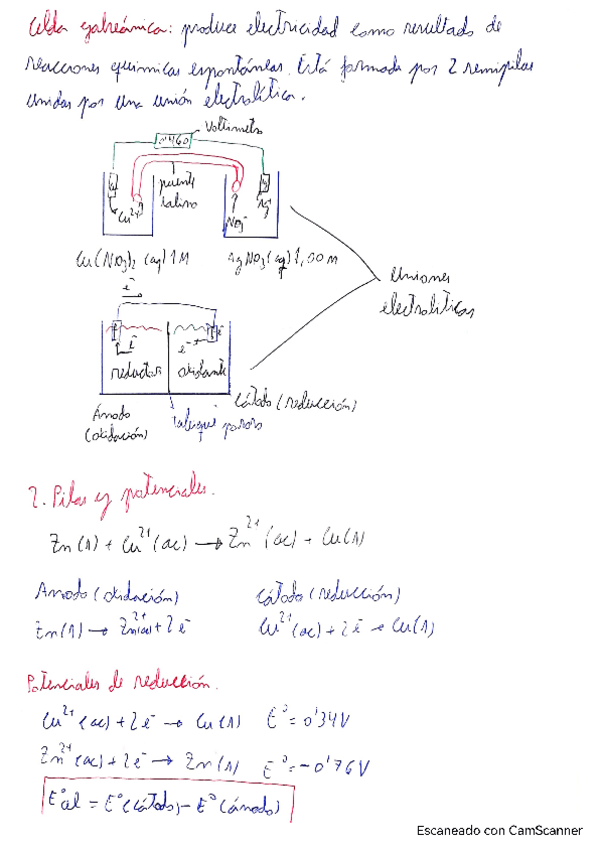 Celda galvánica: produce electricidad como resultado de
reacciones químicas espontáneas. Está formada por 2 semipilas
unidas por una unión electrolítica.
Voltímetro
0'460
puente
salino
Cu
Ag
Cu²⁺
NO₃⁻
Ag⁺
Cu(NO₃)₂ (aq) 1M
AgNO₃(aq) 1,00 M
Uniones
electrolíticas
e⁻
e⁻
e⁻
reductor
oxidante
Ánodo
(oxidación)
tabique poroso
Cátodo (reducción)
2. Pilas y potenciales.
Zn(s) + Cu²⁺(ac) → Zn²⁺(ac) + Cu(s)
Ánodo (oxidación)
Cátodo (reducción)
Zn(s) → Zn²⁺(ac) + 2e⁻
Cu²⁺(ac) + 2e⁻ → Cu(s)
Potenciales de reducción.
Cu²⁺(ac) + 2e⁻ → Cu(s) E° = 0'34V
Zn²⁺(ac) + 2e⁻ → Zn(s) E° = -0'76V
E°cel = E°(cátodo) - E°(ánodo)
Escaneado con CamScanner